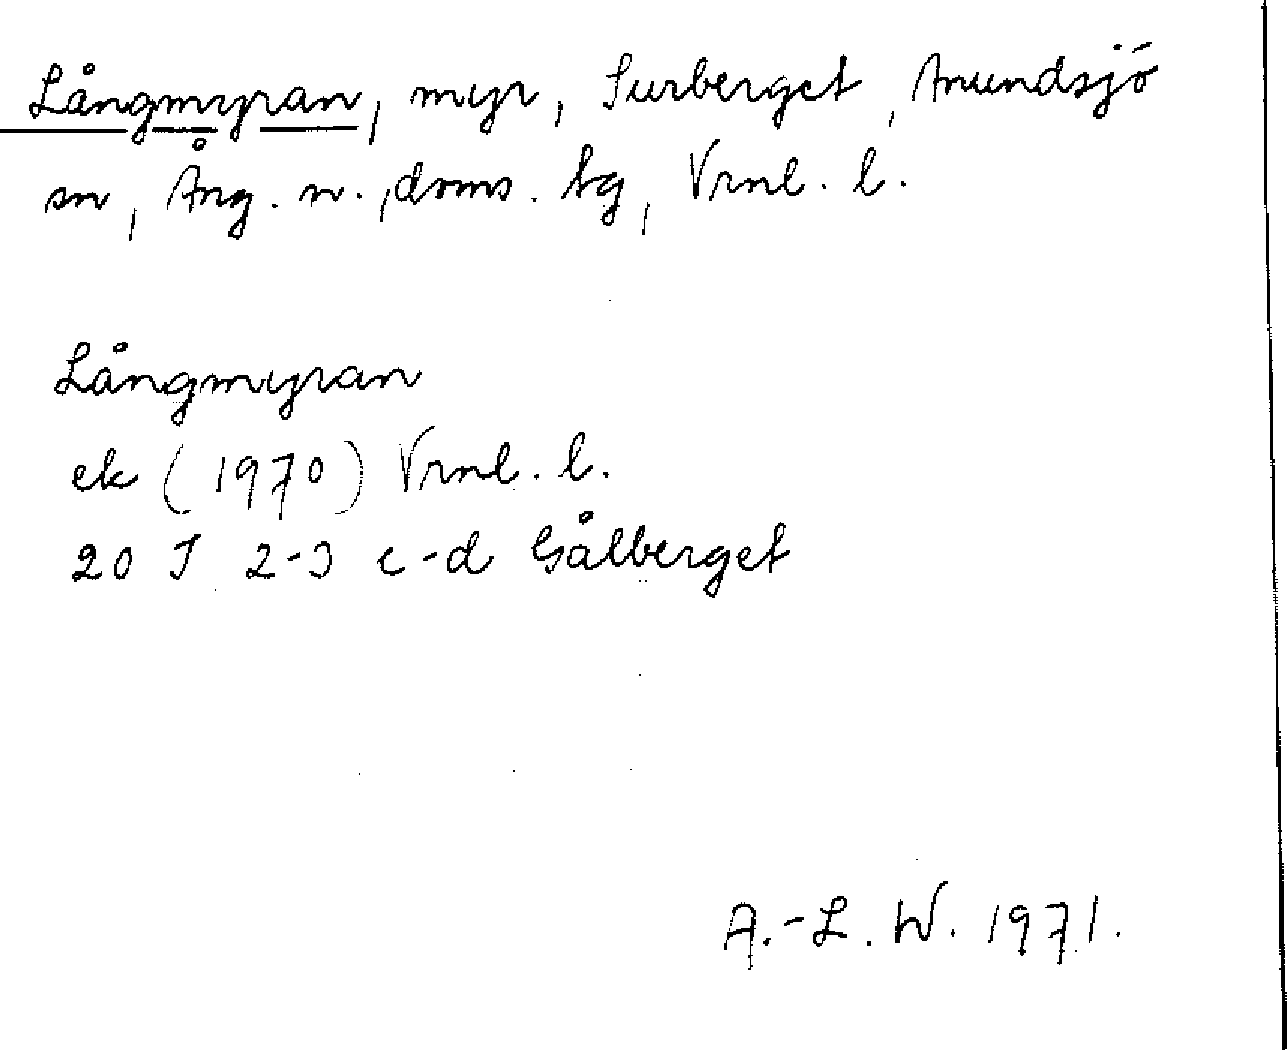 Långmyran, myr, Surberget, Anundsjö
sn, Ång. n., doms. bg, Vrnl. l.
Långmyran
ek (1970) Vrnl. l.
20 J 2-3 c-d Gålberget
A.-L. W. 1971.